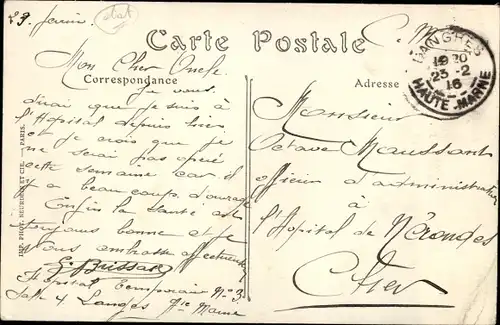 23 février
état
F. M.
Carte Postale
Correspondance
Adresse
LANGRES
19 30
23 - 2
16
HAUTE-MARNE
IMP. PHOT. NEURDEIN ET CIE. — PARIS.
Mon Cher Oncle.
Je vous
dirai que je suis à
l'Hopital depuis hier
et je crois que je
ne serai pas opéré
cette semaine car il
y a beaucoup d'ouvrage
Enfin la Santé est
toujours bonne et je
vous embrasse affectueusement
G. Buissart
Hopital temporaire No 3
Salle 4 Langres Hte Marne
Monsieur
Octave Maussant
officier d'administration
à
l'Hopital de Nérondes
Cher